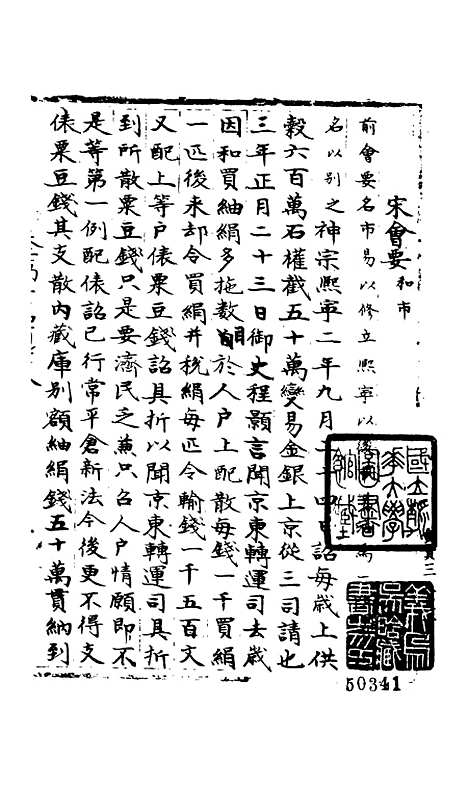 宋會要
和市
前會要名市易以修立熙寧以
名以別之神宗熙寧二年九月二十四日詔每歲上供
穀六百萬石權截五十萬變易金銀上京從三司請也
三年正月二十三日御史程顥言聞京東轉運司去歲
因和買紬絹多拖數目於人戶上配散每錢一千買絹
一匹後來却令買絹并稅絹每匹令輸錢一千五百文
又配上等戶俵粟豆錢詔具折以聞京東轉運司具折
到所散粟豆錢只是要濟民乏兼只召人戶情願即不
是等第一例配俵詔已行常平倉新法今後更不得支
俵粟豆錢其支散內藏庫別額紬絹錢五十萬貫納到
50341